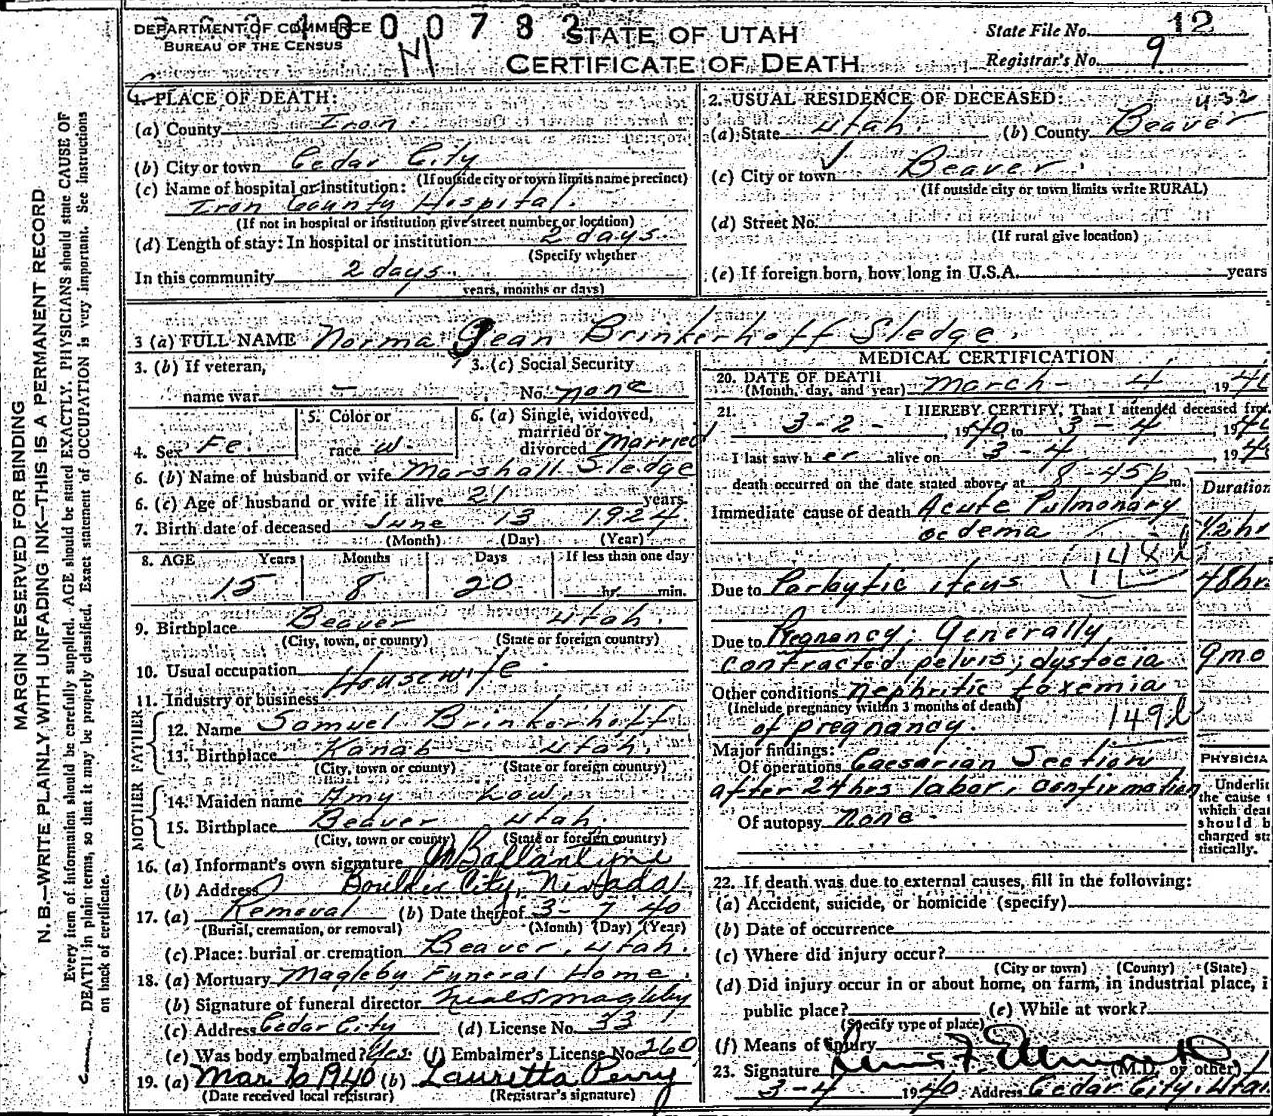 DEPARTMENT OF COMMERCE
BUREAU OF THE CENSUS
STATE OF UTAH
CERTIFICATE OF DEATH
State File No. 12
Registrar's No. 9
1. PLACE OF DEATH:
(a) County Iron
(b) City or town Cedar City
(If outside city or town limits name precinct)
(c) Name of hospital or institution:
Iron County Hospital.
(If not in hospital or institution give street number or location)
(d) Length of stay: In hospital or institution 2 days
(Specify whether
In this community 2 days
years, months or days)
2. USUAL RESIDENCE OF DECEASED: 432
(a) State Utah. (b) County Beaver
(c) City or town Beaver
(If outside city or town limits write RURAL)
(d) Street No.
(If rural give location)
(e) If foreign born, how long in U.S.A. years
3 (a) FULL NAME Norma Jean Brinkerhoff Sledge.
3. (b) If veteran, name war -
3. (c) Social Security No. none
4. Sex Fe.
5. Color or race W.
6. (a) Single, widowed, married or divorced Married
6. (b) Name of husband or wife Marshall Sledge
6. (c) Age of husband or wife if alive 21 years
7. Birth date of deceased June 13 1924
(Month) (Day) (Year)
8. AGE Years Months Days If less than one day
15 8 20 hr. min.
9. Birthplace Beaver Utah.
(City, town, or county) (State or foreign country)
10. Usual occupation Housewife
11. Industry or business
FATHER
12. Name Samuel Brinkerhoff
13. Birthplace Kanab Utah.
(City, town or county) (State or foreign country)
MOTHER
14. Maiden name Amy Low
15. Birthplace Beaver Utah.
(City, town or county) (State or foreign country)
16. (a) Informant's own signature
(b) Address Boulder City, Nevada
17. (a) Removal (b) Date thereof 3-7 40
(Burial, cremation, or removal) (Month) (Day) (Year)
(c) Place: burial or cremation Beaver, Utah.
18. (a) Mortuary Magleby Funeral Home.
(b) Signature of funeral director Neal S Magleby
(c) Address Cedar City (d) License No. 33
(e) Was body embalmed? Yes. (f) Embalmer's License No. 260
19. (a) Mar. 1940 (b) Lauretta Perry
(Date received local registrar) (Registrar's signature)
MEDICAL CERTIFICATION
20. DATE OF DEATH
(Month, day, and year) March - 4, 1940
21. I HEREBY CERTIFY, That I attended deceased from
3-2-, 1940 to 3-4, 1940
I last saw her alive on 3-4, 1940
death occurred on the date stated above, at 8-45 p m.
Duration
Immediate cause of death Acute Pulmonary 1/2 hr
oedema
Due to 48 hrs
Due to Pregnancy; Generally
contracted pelvis; dystocia 9 mo
Other conditions nephritic toxemia
(Include pregnancy within 3 months of death)
of pregnancy.
Major findings:
Of operations Caesarian Section
after 24 hrs labor, confirmation
Of autopsy None -
PHYSICIA
Underlin
the cause
which dea
should b
charged sta
tistically.
22. If death was due to external causes, fill in the following:
(a) Accident, suicide, or homicide (specify)
(b) Date of occurrence
(c) Where did injury occur?
(City or town) (County) (State)
(d) Did injury occur in or about home, on farm, in industrial place, i
public place? (e) While at work?
(Specify type of place)
(f) Means of injury
23. Signature (M.D. or other)
3-4 1940 Address Cedar City, Utah
MARGIN RESERVED FOR BINDING
N. B.—WRITE PLAINLY WITH UNFADING INK—THIS IS A PERMANENT RECORD
Every item of information should be carefully supplied. AGE should be stated EXACTLY. PHYSICIANS should state CAUSE OF
DEATH in plain terms, so that it may be properly classified. Exact statement of OCCUPATION is very important. See instructions
on back of certificate.